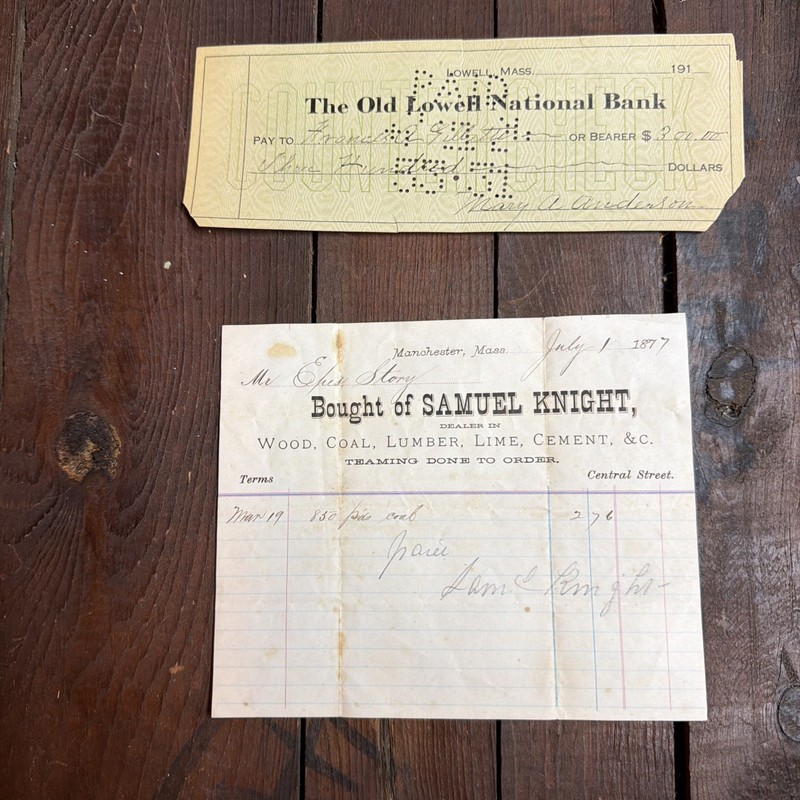 LOWELL, MASS. 191
PAID
The Old Lowell National Bank
PAY TO Frances A OR BEARER $ 300.00
Three Hundred DOLLARS
53-51
COUNTER CHECK
Mary A Anderson
Manchester, Mass. July 1 1877
Mr Epes Story
Bought of SAMUEL KNIGHT,
DEALER IN
WOOD, COAL, LUMBER, LIME, CEMENT, &C.
TEAMING DONE TO ORDER.
Terms Central Street.
Mar 19 850 coal 2 76
Sam l Knight